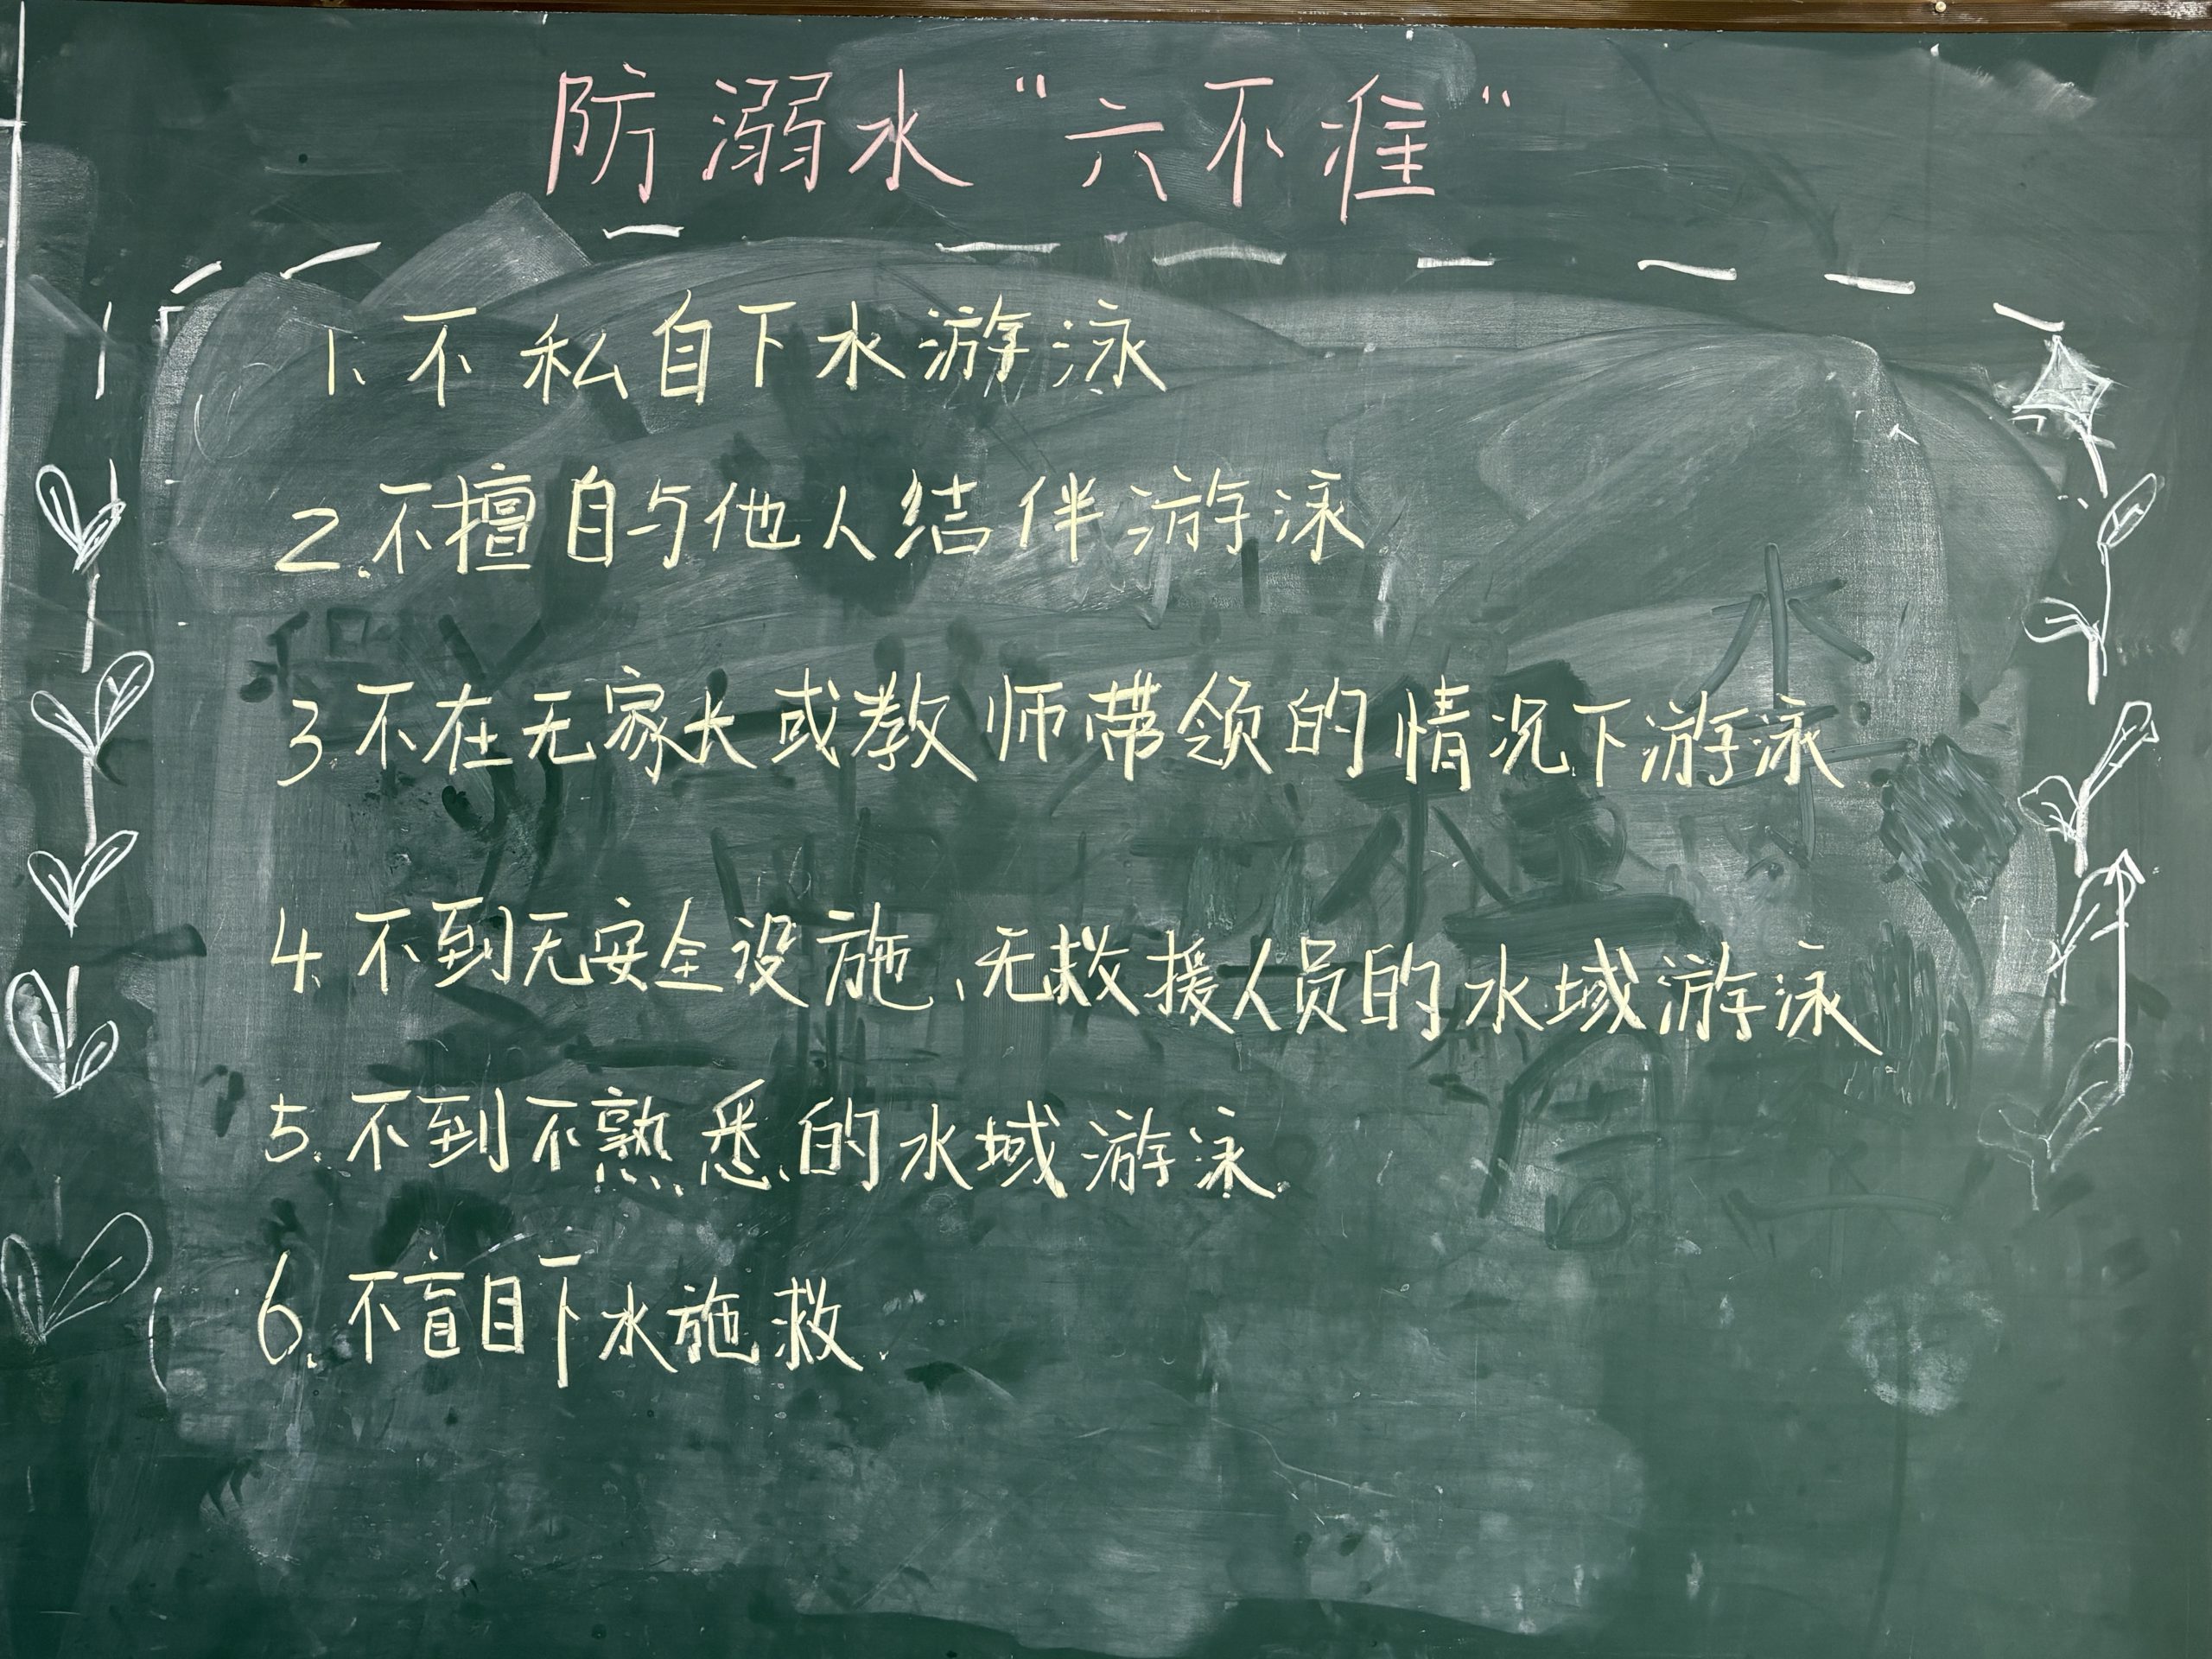 防溺水“六不准“
1、不私自下水游泳
2.不擅自与他人结伴游泳
3.不在无家长或教师带领的情况下游泳
4、不到无安全设施、无救援人员的水域游泳
5.不到不熟悉的水域游泳.
6.不盲目下水施救.